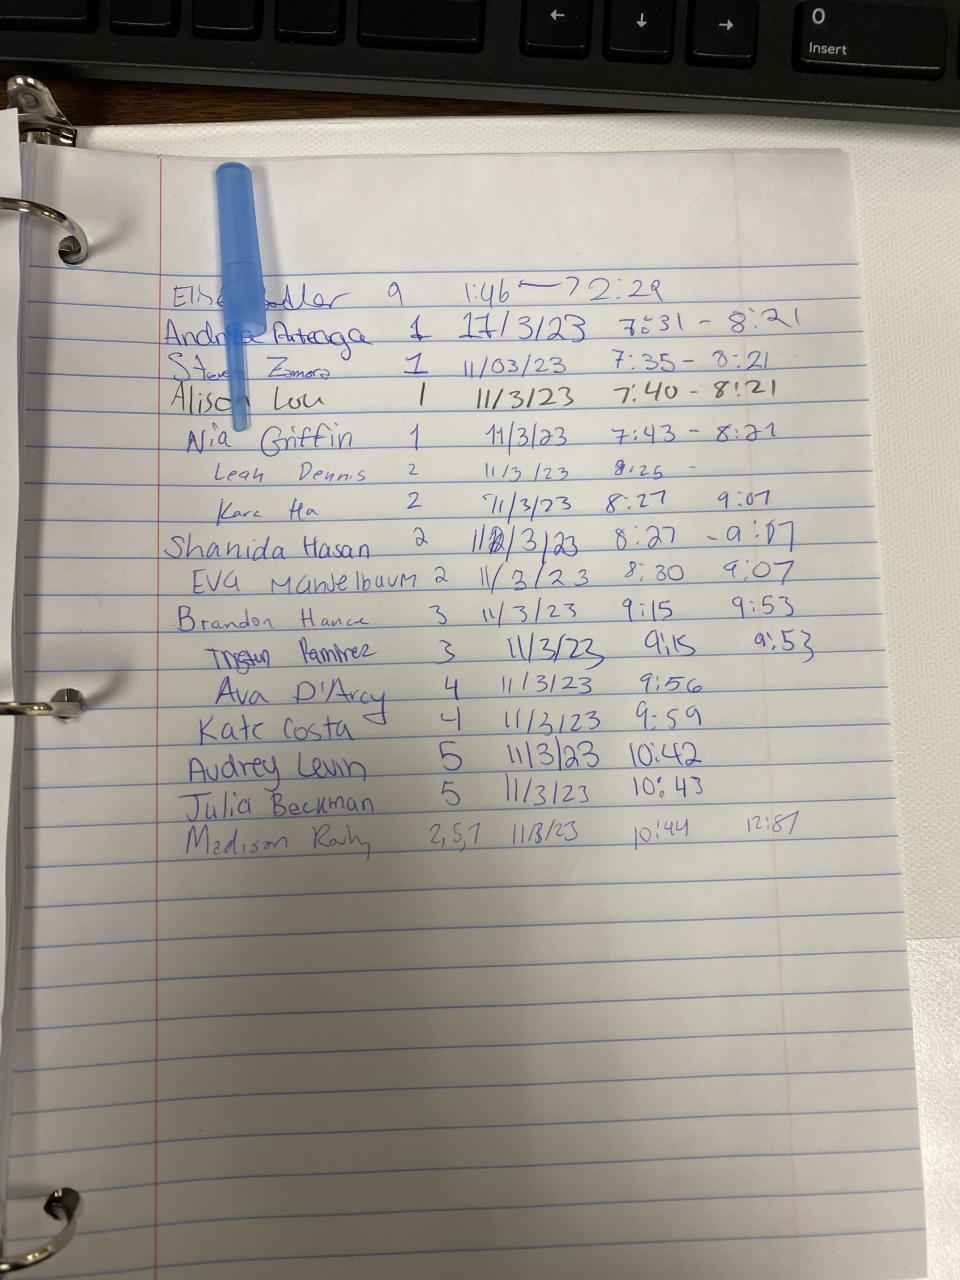 ← ↓ → 0
Insert
9 1:46 → 2:29
Arteaga 1 11/3/23 7:31 - 8:21
Zamora 1 11/03/23 7:35 - 8:21
Alison Lou 1 11/3/23 7:40 - 8:21
Nia Griffin 1 11/3/23 7:43 - 8:21
Leah Dennis 2 11/3/23 8:25 -
Kara Ha 2 11/3/23 8:27 9:07
Shanida Hasan 2 11/3/23 8:27 - 9:07
EVA MANdelbaum 2 11/3/23 8:30 9:07
Brandon Hance 3 11/3/23 9:15 9:53
Ramirez 3 11/3/23 9:15 9:53
Ava D'Arcy 4 11/3/23 9:56
Kate Costa 4 11/3/23 9:59
Audrey Levin 5 11/3/23 10:42
Julia Beckman 5 11/3/23 10:43
Madison 2,5,7 11/3/23 10:44